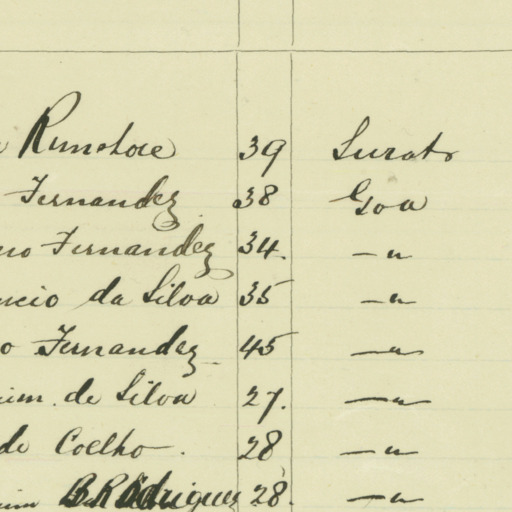 39 Surat
Fernandez 38 Goa
Fernandez 34. —"
da Silva 35 —"
Fernandez 45 —"
de Silva 27. —"
de Coelho. 28 —"
B. Rodriguez 28. —"